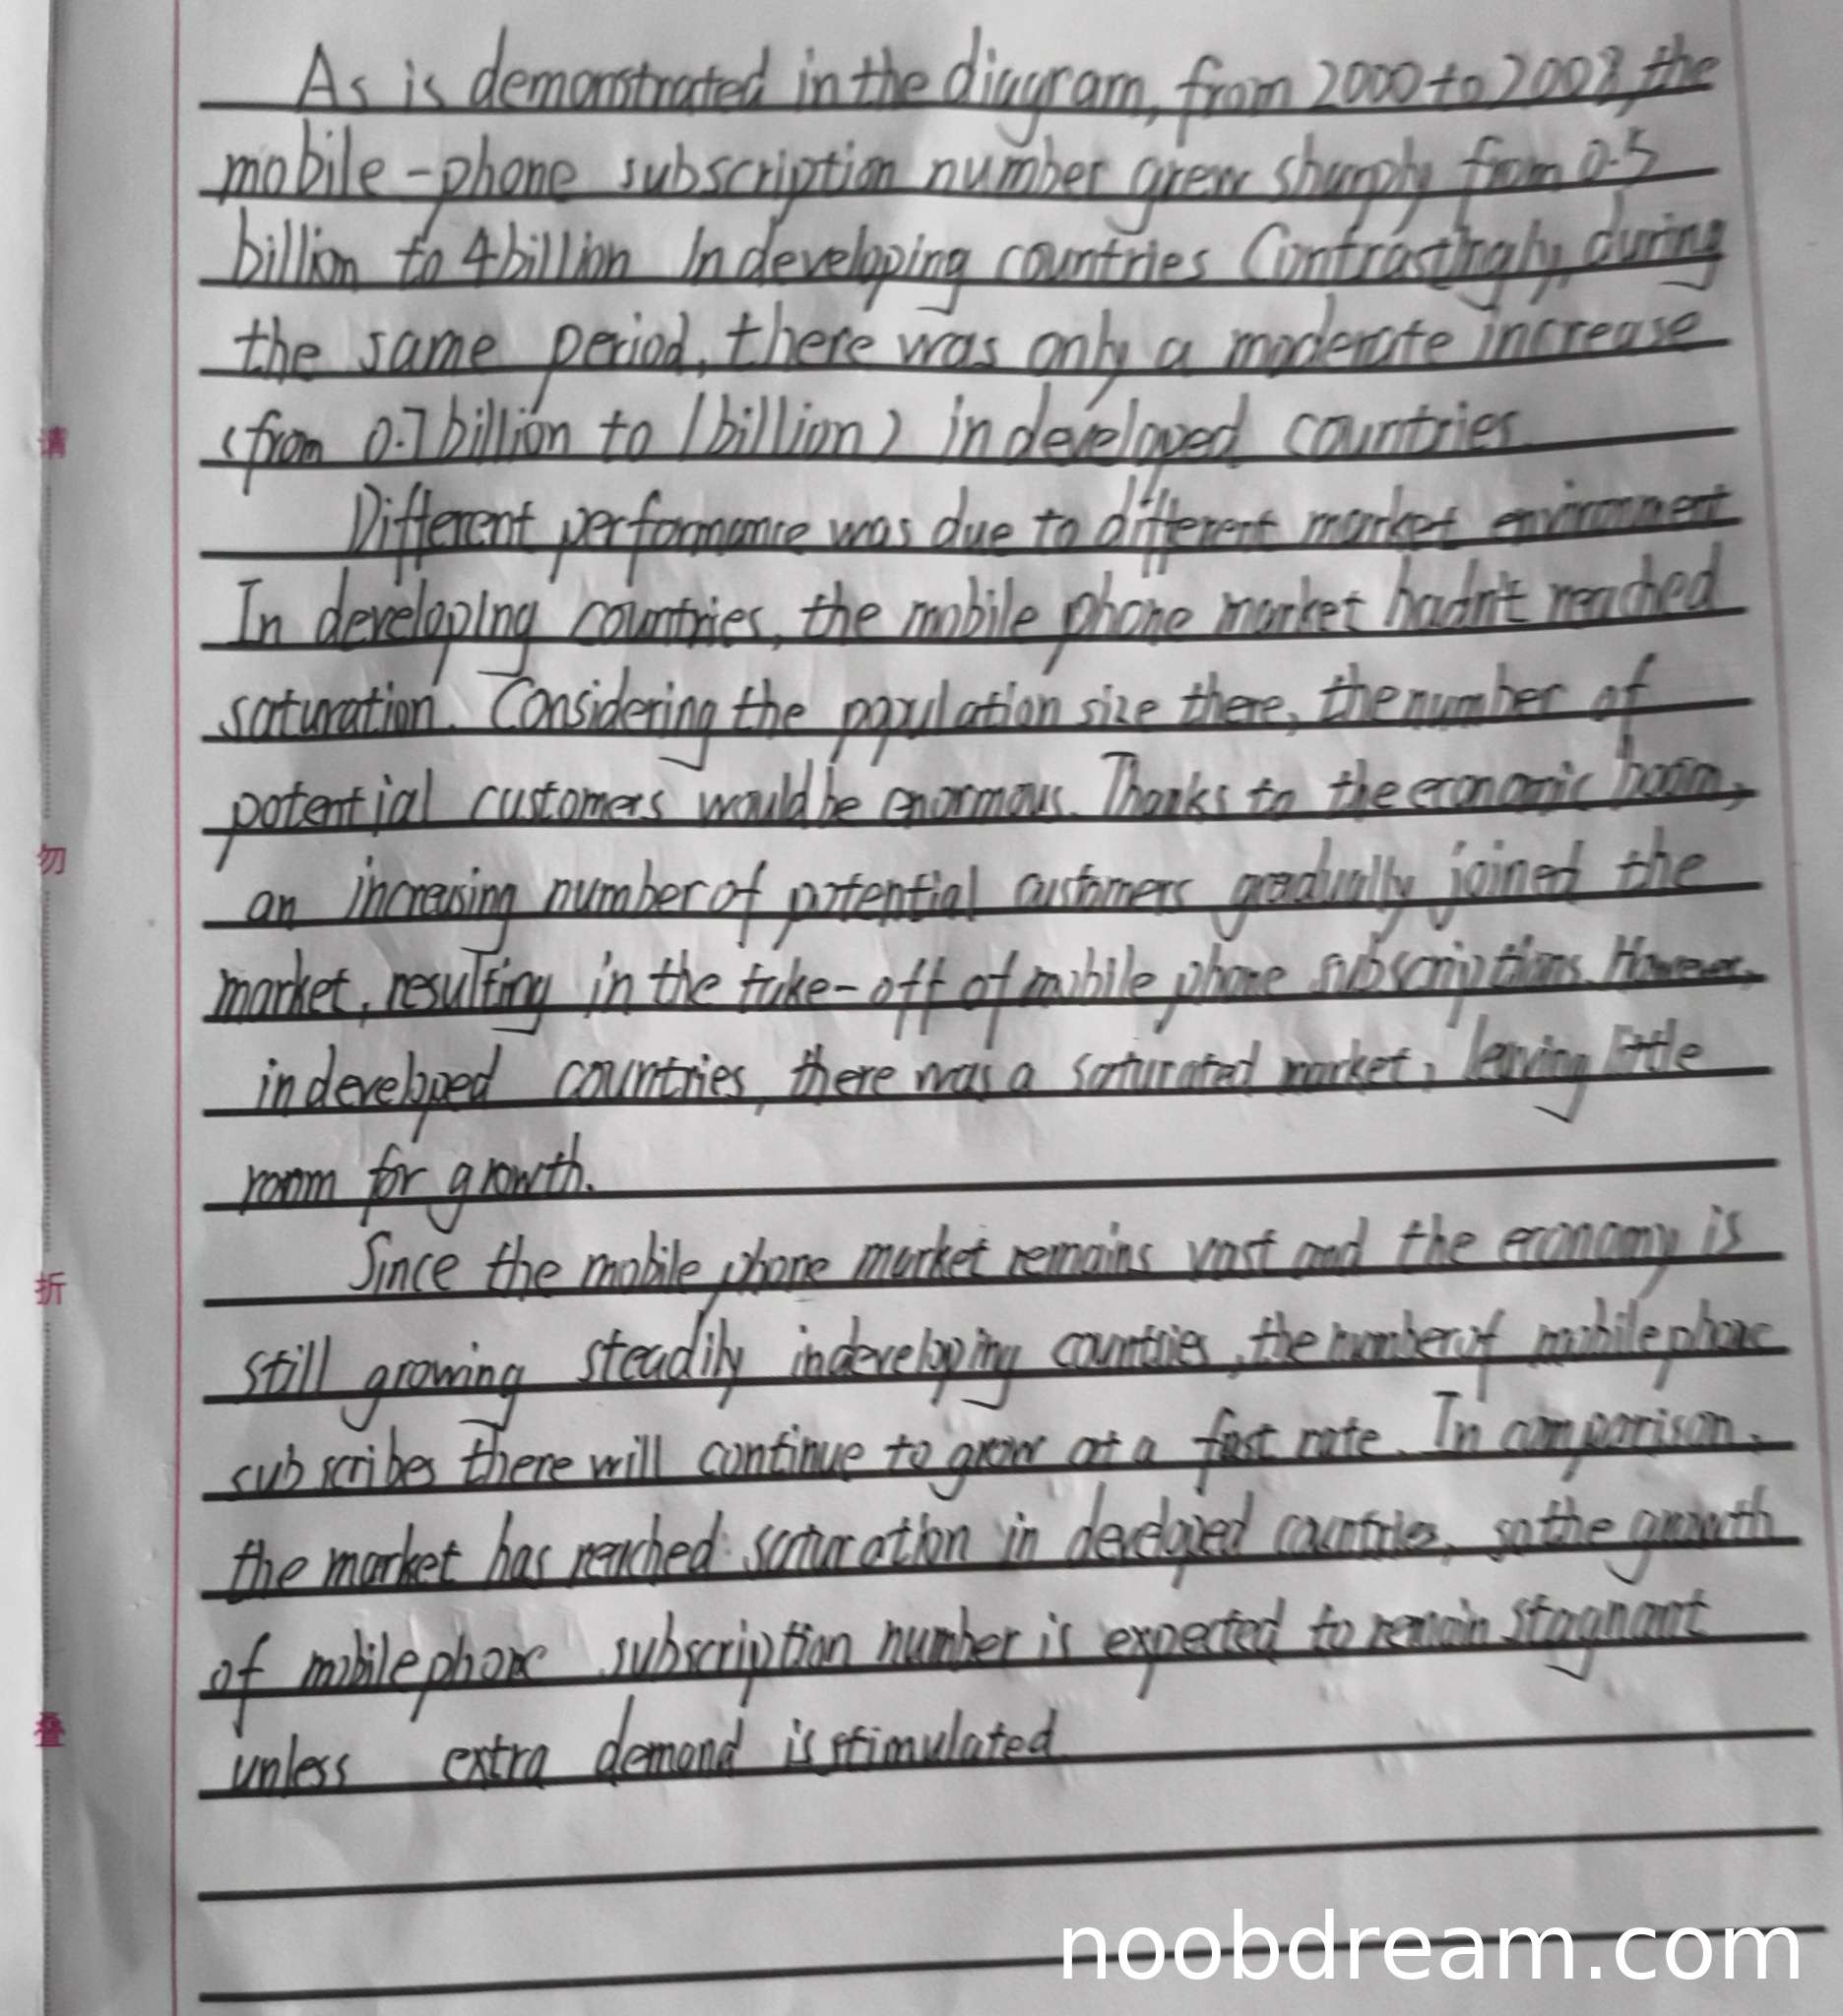 As is demonstrated in the diagram, from 2000 to 2008, the
mobile-phone subscription number grew sharply from 0.5
billion to 4 billion In developing countries Contrastingly, during
the same period, there was only a moderate increase
(from 0.7 billion to 1 billion) in developed countries.
Different performance was due to different market environment
In developing countries, the mobile phone market hadn't reached
saturation. Considering the population size there, the number of
potential customers would be enormous. Thanks to the economic boom,
an increasing number of potential customers gradually joined the
market, resulting in the take-off of mobile phone subscriptions. However,
in developed countries, there was a saturated market, leaving little
room for growth.
Since the mobile phone market remains vast and the economy is
still growing steadily in developing countries, the number of mobile phone
subscribes there will continue to grow at a fast rate. In comparison,
the market has reached saturation in developed countries, so the growth
of mobile phone subscription number is expected to remain stagnant
unless extra demand is stimulated.
请
勿
折
叠
noobdream.com